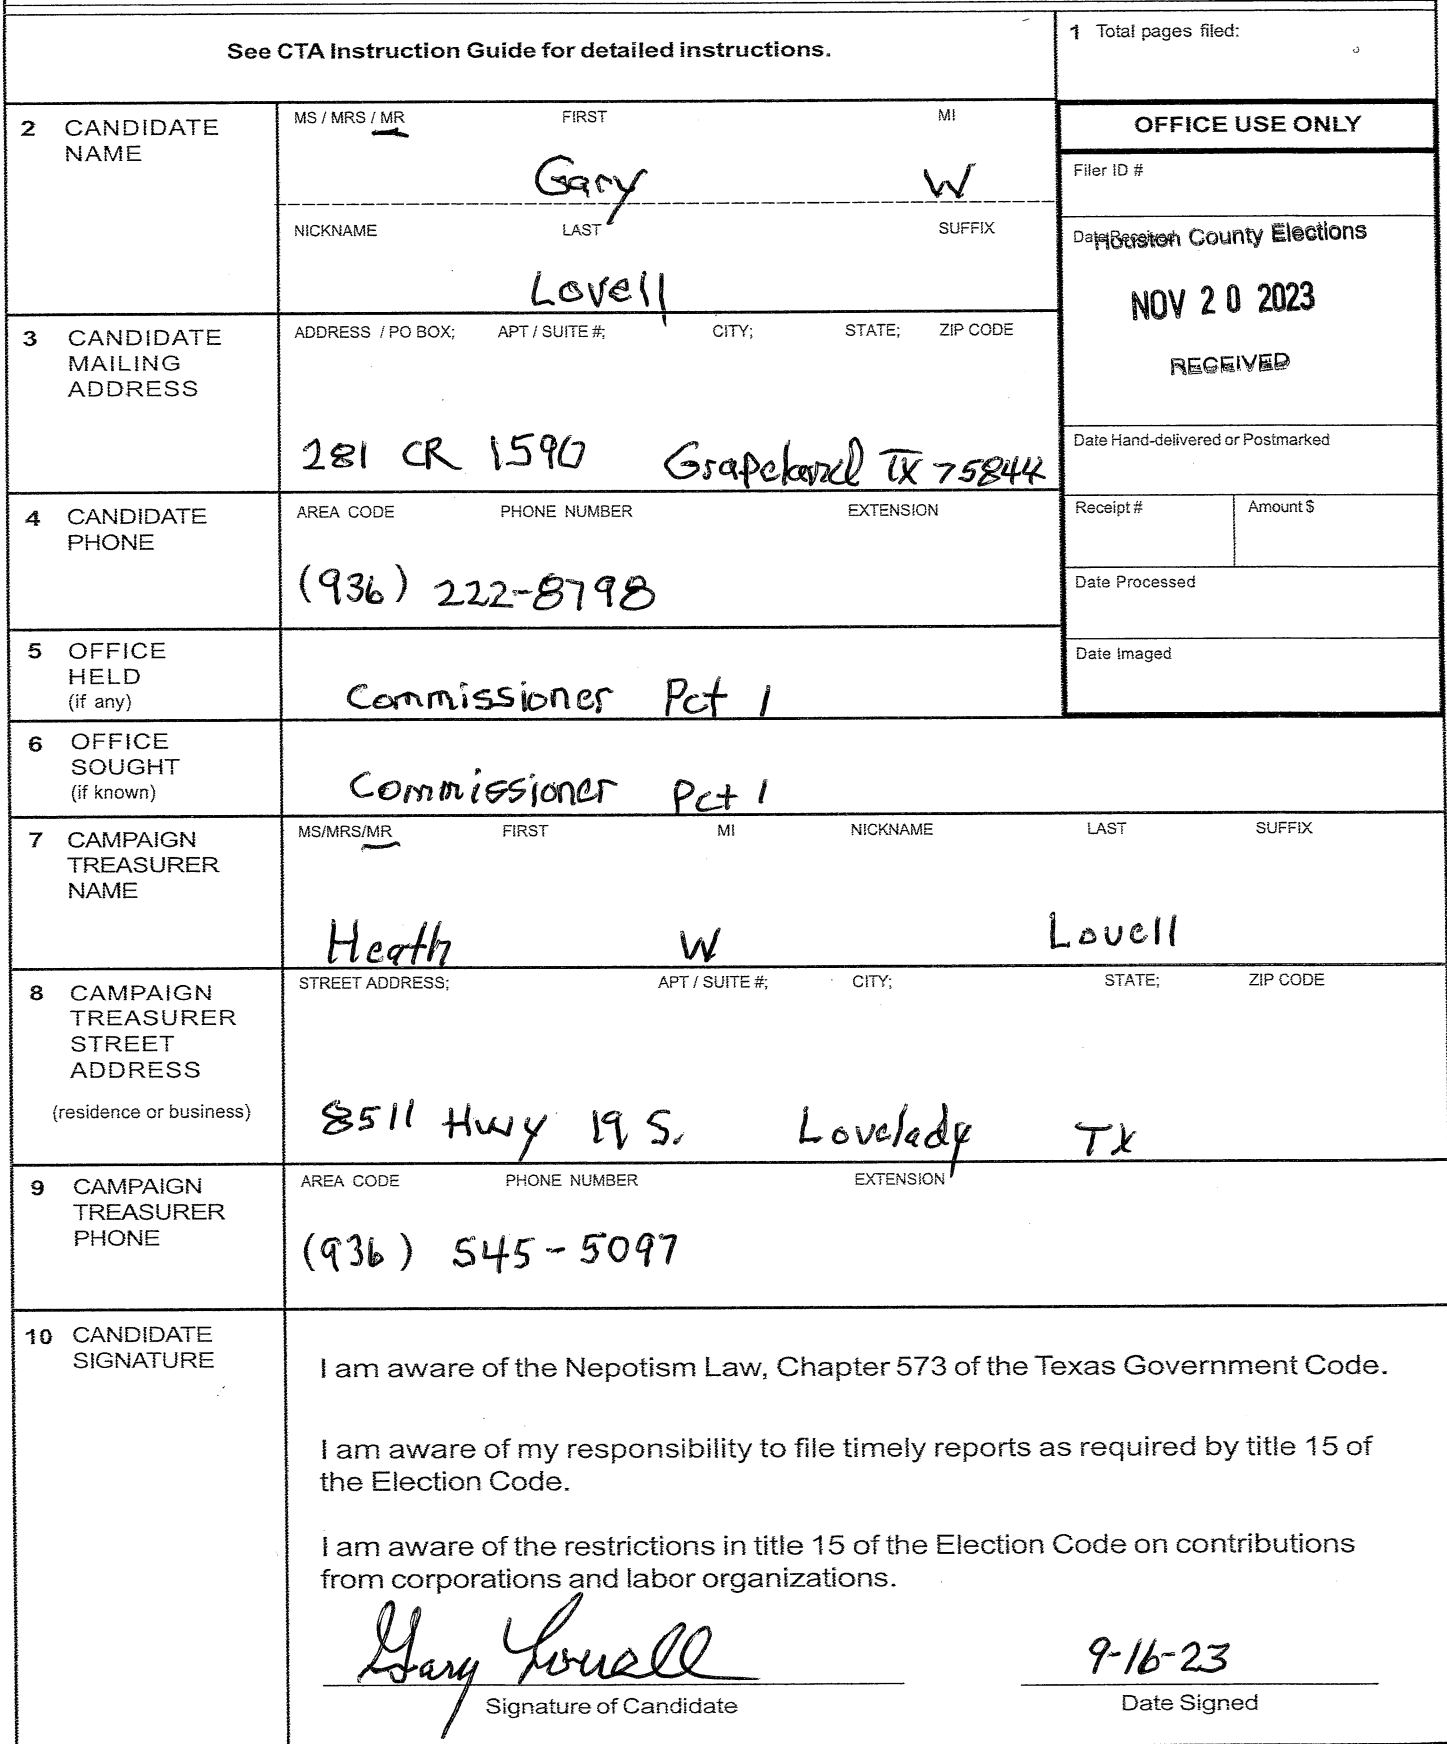 See CTA Instruction Guide for detailed instructions.
1 Total pages filed:
2 CANDIDATE NAME
MS / MRS / MR FIRST MI
Gary W
NICKNAME LAST SUFFIX
Lovell
OFFICE USE ONLY
Filer ID #
Date Received
Houston County Elections
NOV 20 2023
RECEIVED
Date Hand-delivered or Postmarked
Receipt # Amount $
Date Processed
Date Imaged
3 CANDIDATE MAILING ADDRESS
ADDRESS / PO BOX; APT / SUITE #; CITY; STATE; ZIP CODE
281 CR 1590 Grapeland TX 75844
4 CANDIDATE PHONE
AREA CODE PHONE NUMBER EXTENSION
(936) 222-8798
5 OFFICE HELD (if any)
Commissioner Pct 1
6 OFFICE SOUGHT (if known)
Commissioner Pct 1
7 CAMPAIGN TREASURER NAME
MS/MRS/MR FIRST MI NICKNAME LAST SUFFIX
Heath W Lovell
8 CAMPAIGN TREASURER STREET ADDRESS
(residence or business)
STREET ADDRESS; APT / SUITE #; CITY; STATE; ZIP CODE
8511 Hwy 19 S. Lovelady TX
9 CAMPAIGN TREASURER PHONE
AREA CODE PHONE NUMBER EXTENSION
(936) 545-5097
10 CANDIDATE SIGNATURE
I am aware of the Nepotism Law, Chapter 573 of the Texas Government Code.
I am aware of my responsibility to file timely reports as required by title 15 of
the Election Code.
I am aware of the restrictions in title 15 of the Election Code on contributions
from corporations and labor organizations.
Gary Lovell 9-16-23
Signature of Candidate Date Signed